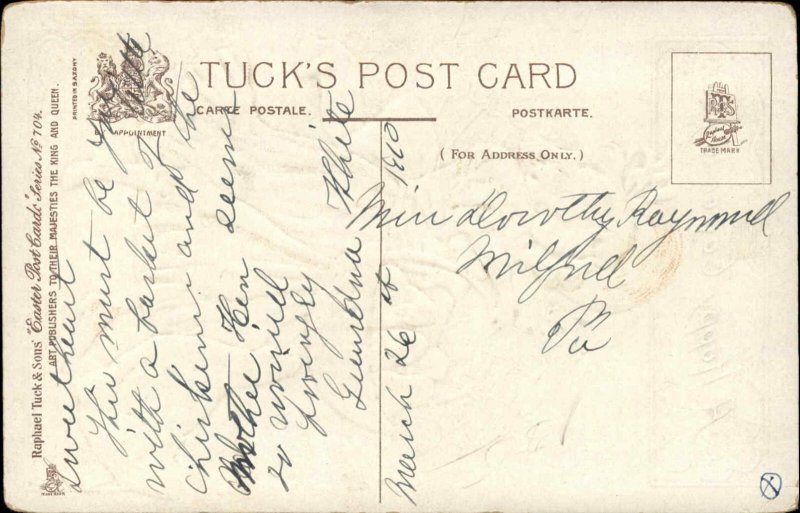 TUCK'S POST CARD
CARTE POSTALE.
POSTKARTE.
( FOR ADDRESS ONLY. )
BY APPOINTMENT
PRINTED IN SAXONY
TRADE MARK
Raphael Tuck & Sons' "Easter Post Cards" Series Nº 704.
ART PUBLISHERS TO THEIR MAJESTIES THE KING AND QUEEN.
Sweetheart
This must be you
with a basket of
chickens and the
Mother Hen seems
so worried
Lovingly
White
March 26 1910
Miss Dorothy Raymond
Milford
Pa